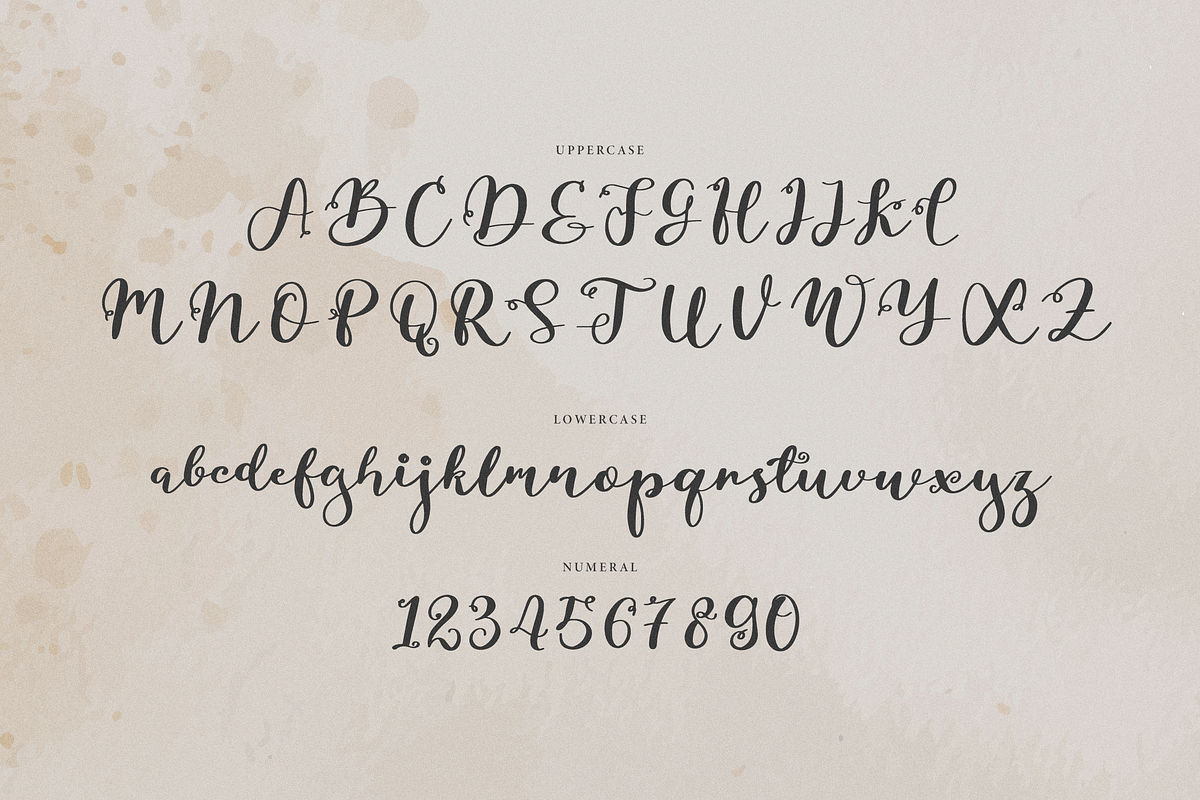 UPPERCASE
ABCDEFGHIJKL
MNOPQRSTUVWYXZ
LOWERCASE
abcdefghijklmnopqrstuvwxyz
NUMERAL
1234567890